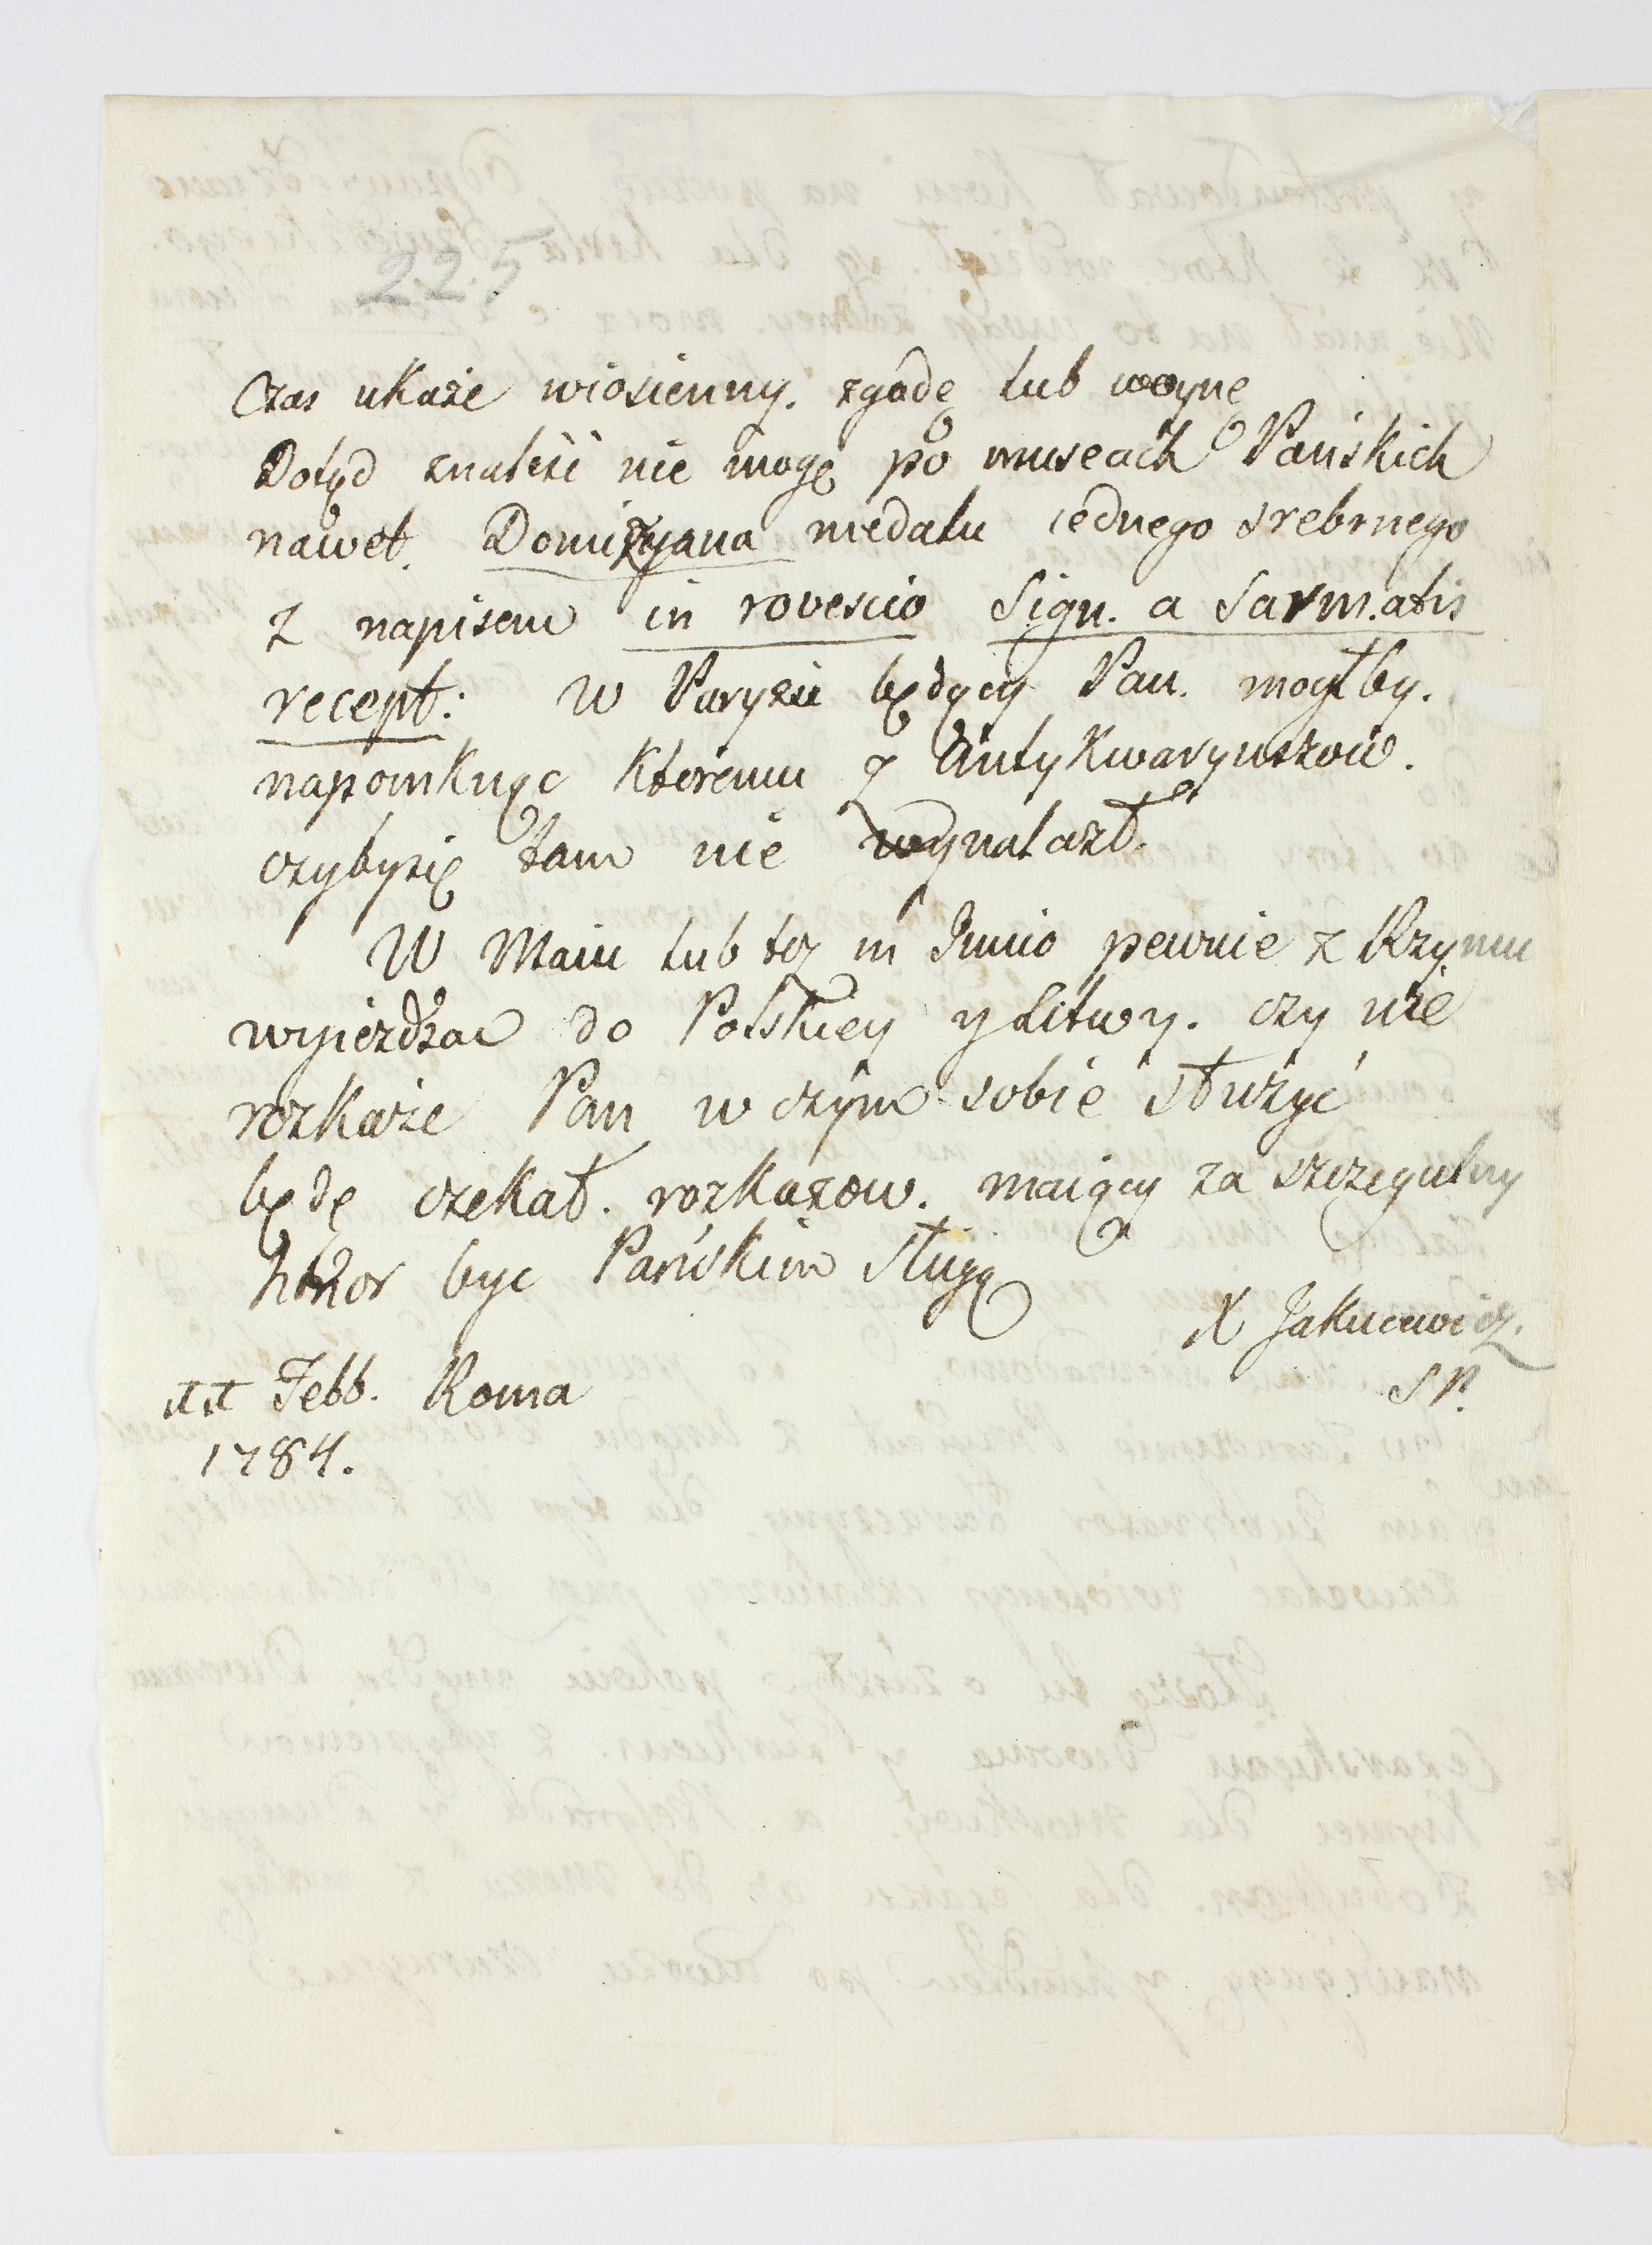 225
Czas ukaże wiosienny. zgodę lub woynę
Dotąd znaleść nie mogę po museach Pańskich
nawet. Domizyana medalu iednego srebrnego
z napisem in rovescio Sign. a Sarm.atis
recept: w Paryżu będący Pan. mogłby.
napomknąc ktoremu z Antykwaryuszow.
czybysię tam nie wynalazł.
W Maiu lub tez in Junio pewnie z Rzymu
wyieżdżac do Polskiey y Litwy. czy nie
rozkaże Pan w czym sobie służyć
będę czekał. rozkazow. maiący za szczegulny
honor byc Pańskim sługą
X Jakucewicz.
SP.
Febb. Roma
1784.